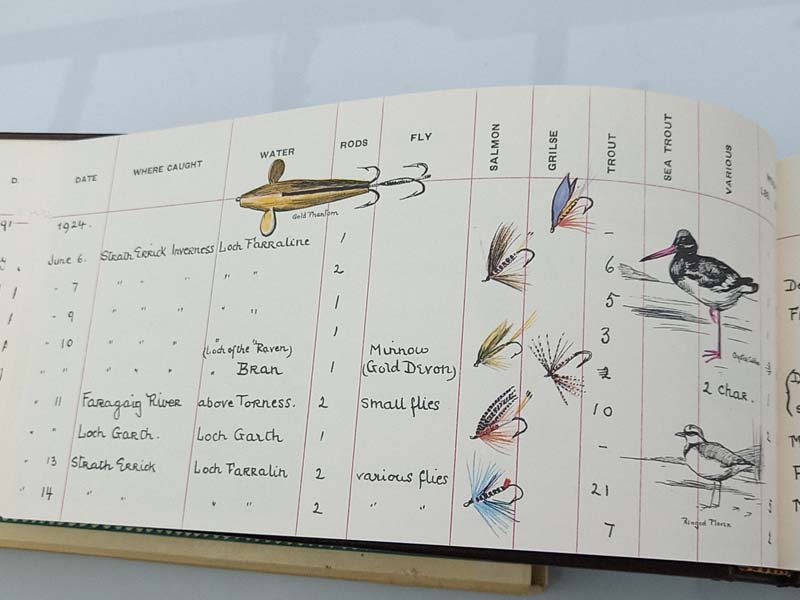 D. DATE WHERE CAUGHT WATER RODS FLY SALMON GRILSE TROUT SEA TROUT VARIOUS LBS.
Gold Phantom
1924.
June 6. Strath Errick Inverness Loch Farraline 1 -
- 7 " " " " " 2 6
- 9 " " " " " 1 5
- 10 " " " 1 3
(Loch of the "Raven) Minnow
" " " " Bran 1 (Gold Devon) 2
2 Char.
" 11 Faragaig River above Torness. 2 Small flies 10
" " Loch Garth. Loch Garth 1 -
- 13 Strath Errick Loch Farralin 2 various flies 21
" 14 " " " " 2 " " 7
Ringed Plover